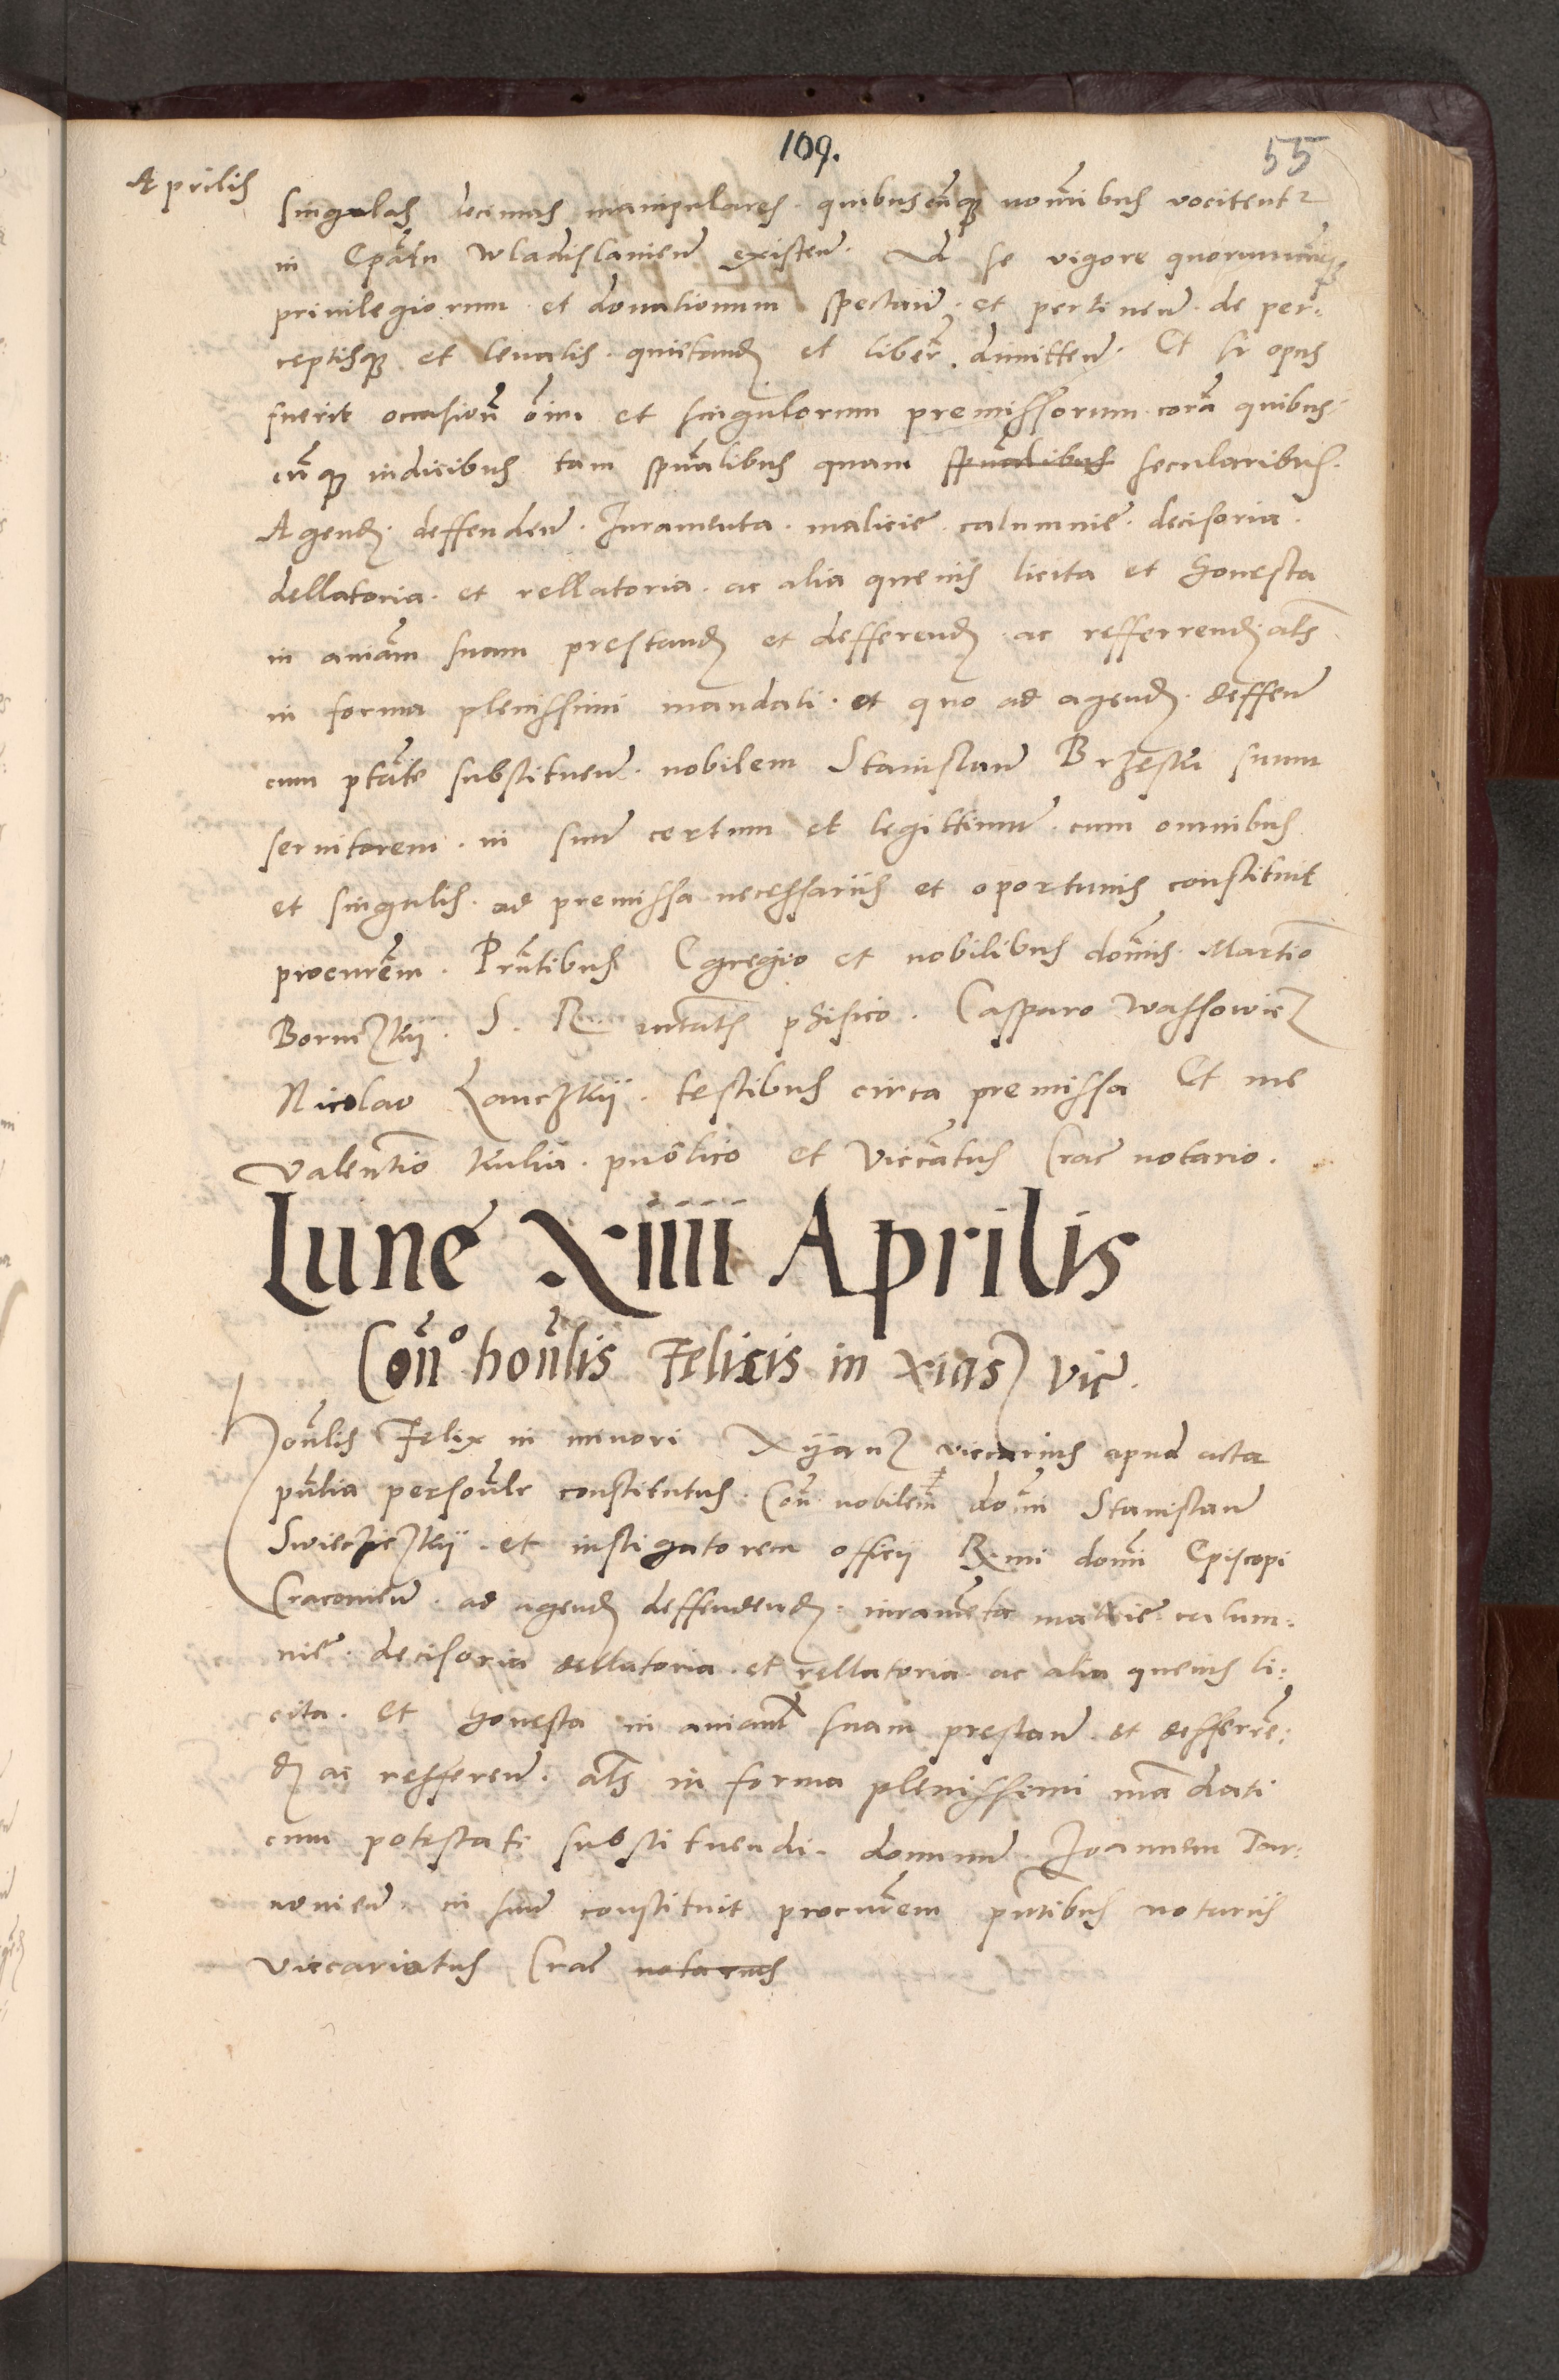 109.
55
Aprilis
singulas decimas manipulares. quibuscūq; nom̃ibus vocitentr
in Ep̃atu Wladislavien̄ existen̄. Ad se vigore quorumcūq;
privilegiorum et donationum spectan̄. et pertinen̄. de per:
ceptisq; et levatis. quitand̄ et liber̃. dimitten̄. Et si opus
fuerit occasion̄ õim et singulorum premissorum. corã quibus:
cūq; iudicibus tam spũalibus quam spũalibus secularibus.
Agend̄. deffenden̄. Juramenta. malicie. calumnie. decisoria.
dellatoria. et rellatoria. ac alia quevis licita et honesta
in aniam̃ suam prestand̄ et defferend̄. ac refferrend̄ als̃
in forma plenissimi mandati. et quo ad agend̄. deffen̄
cum ptãte substituen̄. nobilem Stanislaū Brzeski suum
servitorem. in suū certum et legittimū. cum omnibus
et singulis. ad premissa necessariis et oportunis constituit
procur̃em. Prñtibus Egregio et nobilibus dom̃is. Martiõ
S. R. mtatis̃ phisico. Casparo Wassowicz
Nicolao Lanczkij. testibus circa premissa Et me
Valentiõ Kulia. publico et Viccãtus Crac̃ notario.
Lune Xiiii Aprilis
Con̄o hon̄lis Felicis in Xias) vic̃.
Hon̄lis Felix in minori Xyanz viccarius apud acta
pñtia person̄lr constitutus. Con̄ nobilem̃ dom̃ Stanislaū
Swieczickij. et instigatorem officij R.mi dom̃i Episcopi
Cracovien̄. ad agend̄ deffendend̄. iuram̃eta malicie. calum:
nie. decisoria dellatoria. et rellatoria. ac alia quevis li:
cita. et honesta in aniam̃ suam prestan̄. et defferre:
d̄ ac refferen̄. als̃ in forma plenissimi mãdati
cum potestate substituendi. dominū Joannem Tar:
novien̄. in suū constituit procur̃em pñtibus notariis
viccariatus Crac̃ notarius